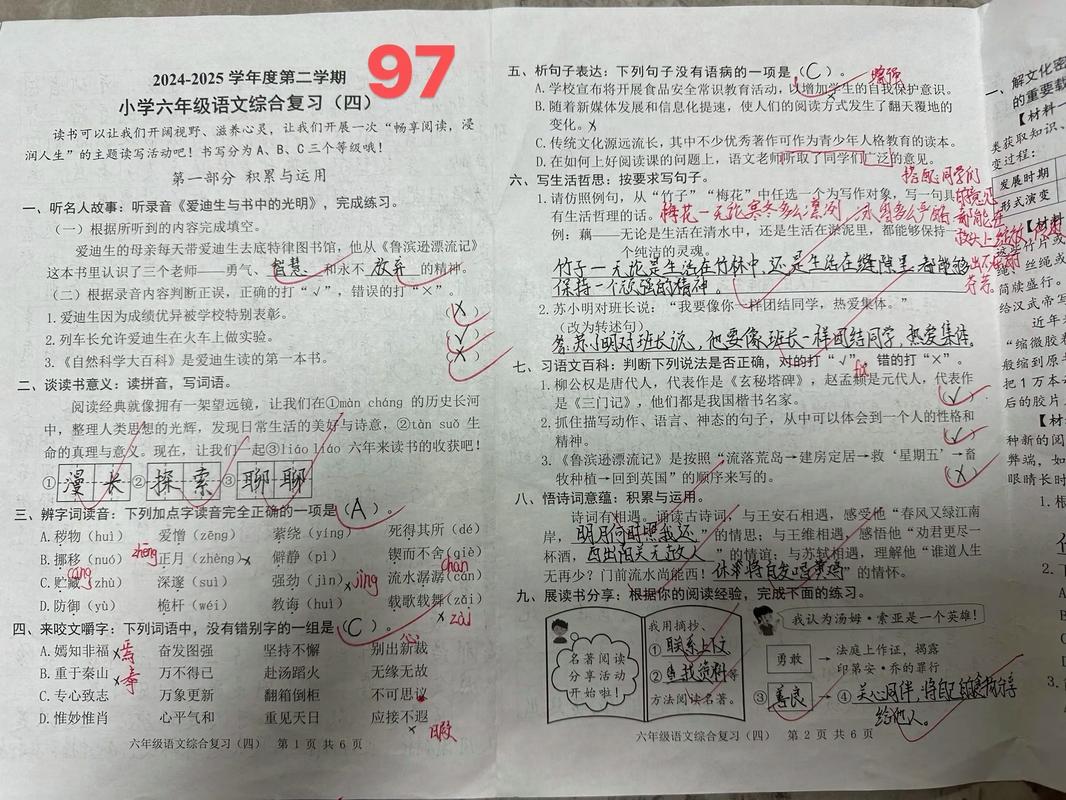 97
2024-2025 学年度第二学期
小学六年级语文综合复习（四）
读书可以让我们开阔视野、滋养心灵，让我们开展一次“畅享阅读，浸
润人生”的主题读写活动吧！书写分为 A、B、C 三个等级哦！
第一部分 积累与运用
一、听名人故事：听录音《爱迪生与书中的光明》，完成练习。
（一）根据所听到的内容完成填空。
爱迪生的母亲每天带爱迪生去底特律图书馆，他从《鲁滨逊漂流记》
这本书里认识了三个老师——勇气、智慧 和永不 放弃 的精神。
（二）根据录音内容判断正误，正确的打“√”，错误的打“×”。
1. 爱迪生因为成绩优异被学校特别表彰。 （×）
2. 列车长允许爱迪生在火车上做实验。 （√）
3.《自然科学大百科》是爱迪生读的第一本书。 （×）
二、谈读书意义：读拼音，写词语。
阅读经典就像拥有一架望远镜，让我们在①màn cháng 的历史长河
中，整理人类思想的光辉，发现日常生活的美好与诗意，②tàn suǒ 生
命的真理与意义。现在，让我们一起③liáo liáo 六年来读书的收获吧！
① 漫长 ② 探索 ③ 聊聊
三、辨字词读音：下列加点字读音完全正确的一项是（A）。
A. 秽物（huì） 爱憎（zēng） 萦绕（yíng） 死得其所（dé）
B. 挪移（nuó） zhēng 正月（zhèng）× 僻静（pì） 锲而不舍（qiè）
C. 贮藏（zhù） cáng 深邃（suì） 强劲（jìn）× jìng 流水潺潺（cán） chán
D. 防御（yù） 桅杆（wéi） 教诲（huì） 载歌载舞（zǎi）
× zài
四、来咬文嚼字：下列词语中，没有错别字的一组是（C）。
A. 嫣知非福 × 焉 奋发图强 坚持不懈 别出新裁 心
B. 重于秦山 × 泰 万不得已 赴汤蹈火 无缘无故
C. 专心致志 万象更新 翻箱倒柜 不可思议
D. 惟妙惟肖 心平气和 重见天日 应接不遐
× 暇
六年级语文综合复习（四） 第 1 页 共 6 页
五、析句子表达：下列句子没有语病的一项是（C）。
增强
A. 学校宣布将开展食品安全常识教育活动，以增加学生的自我保护意识。
B. 随着新媒体发展和信息化提速，使人们的阅读方式发生了翻天覆地的
变化。×
C. 传统文化源远流长，其中不少优秀著作可作为青少年人格教育的读本。
D. 在如何上好阅读课的问题上，语文老师听取了同学们广泛的意见。
六、写生活哲思：按要求写句子。
1. 请仿照例句，从“竹子”“梅花”中任选一个为写作对象，写一句具
有生活哲理的话。
例：藕——无论是生活在清水中，还是生活在淤泥里，都能够保持一
个纯洁的灵魂。
竹子一无论是生活在竹林中，还是生活在缝隙里，都能够
保持一个顽强的精神。
2. 苏小明对班长说：“我要像你一样团结同学，热爱集体。”
（改为转述句）
苏小明对班长说，他要像班长一样团结同学，热爱集体。
七、习语文百科：判断下列说法是否正确，对的打“√”，错的打“×”。
1. 柳公权是唐代人，代表作是《玄秘塔碑》，赵孟頫是元代人，代表作 fǔ
是《三门记》，他们都是我国楷书名家。 （√）
2. 抓住描写动作、语言、神态的句子，从中可以体会到一个人的性格和
精神。 （√）
3.《鲁滨逊漂流记》是按照“流落荒岛→建房定居→救‘星期五’→畜
牧种植→回到英国”的顺序来写的。 （×）
八、悟诗词意蕴：积累与运用。
诗词有相遇。诵读古诗词，与王安石相遇，感受他“春风又绿江南
岸，明月何时照我还”的情思；与王维相遇，感悟他“劝君更尽一
杯酒，西出阳关无故人”的情谊；与苏轼相遇，理解他“谁道人生
无再少？门前流水尚能西！休将白发唱黄鸡”的情怀。
九、展读书分享：根据你的阅读经验，完成下面的练习。
名著阅读
分享活动
开始啦！
我用摘抄、
① 联系上下文
② 查找资料等
方法阅读名著。
我认为汤姆·索亚是一个英雄！
勇敢 → 法庭上作证，揭露
印第安·乔的罪行
③ 善良 → ④ 关心同伴
给他人。
六年级语文综合复习（四） 第 2 页 共 6 页
解文化密
的重要载
【材料一
类获取知识、
变过程：
发展时期
形式演变